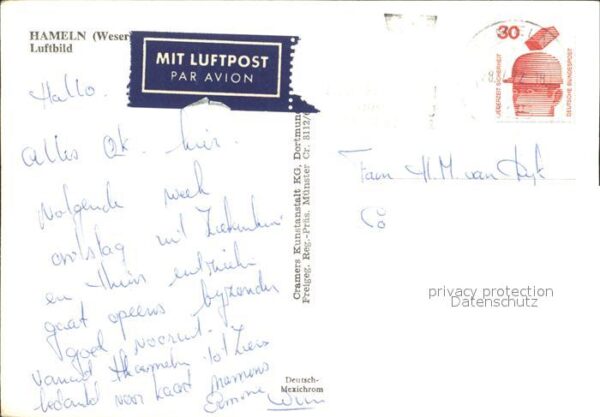 HAMELN (Weser
Luftbild
MIT LUFTPOST
PAR AVION
30
JEDERZEIT SICHERHEIT
DEUTSCHE BUNDESPOST
Hallo.
alles ok. hier.
Volgende week
ontslag uit
en thuis
gaat opeens bijzonder
goed vooruit.
vanuit tot ziens
bedankt voor kaart
Simone Wim
Cramers Kunstanstalt KG, Dortmund
Freigeg. Reg.-Präs. Münster Cr. 3112/
Deutsch-
Mexichrom
Fam H. M. van
privacy protection
Datenschutz